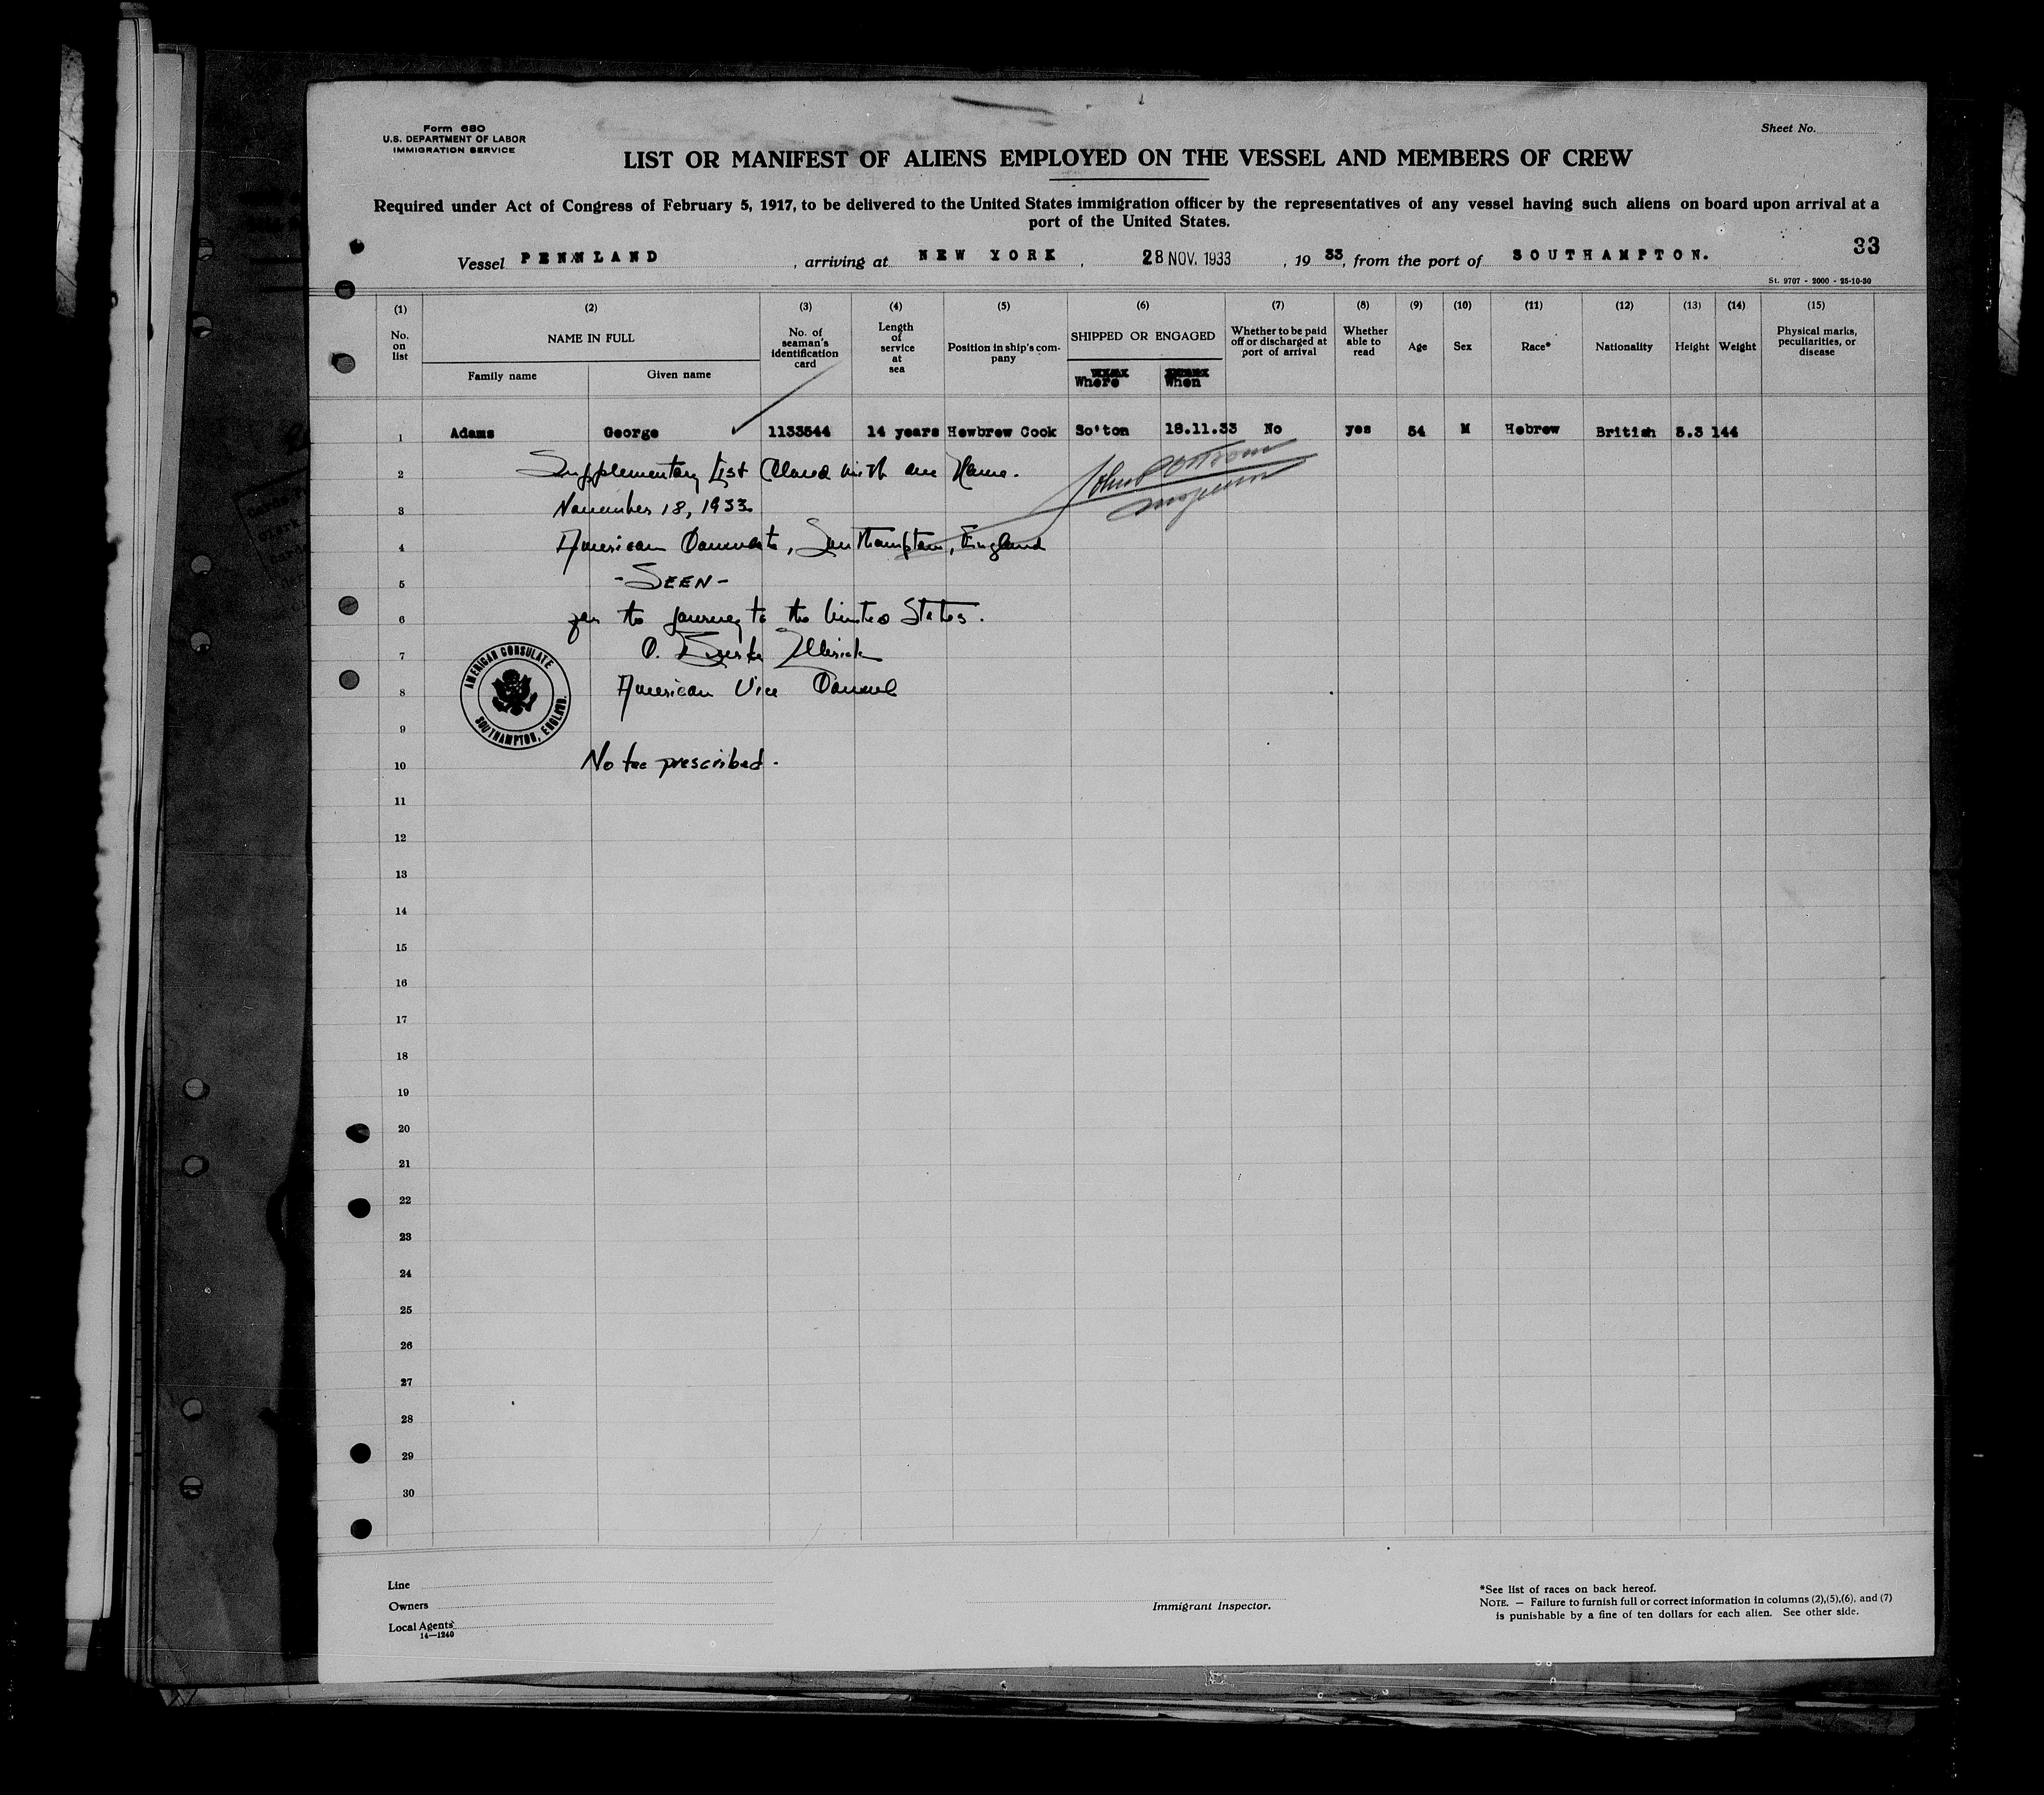 Form 680
U.S. DEPARTMENT OF LABOR
IMMIGRATION SERVICE
Sheet No.
LIST OR MANIFEST OF ALIENS EMPLOYED ON THE VESSEL AND MEMBERS OF CREW
Required under Act of Congress of February 5, 1917, to be delivered to the United States immigration officer by the representatives of any vessel having such aliens on board upon arrival at a
port of the United States.
Vessel PENNLAND, arriving at NEW YORK, 28 NOV. 1933, 1933, from the port of SOUTHAMPTON.
33
St. 9707 - 2000 - 25-10-30
(1) (2) (3) (4) (5) (6) (7) (8) (9) (10) (11) (12) (13) (14) (15)
No. on list
NAME IN FULL
Family name Given name
No. of seaman's identification card
Length of service at sea
Position in ship's company
SHIPPED OR ENGAGED
Where When
Whether to be paid off or discharged at port of arrival
Whether able to read
Age
Sex
Race*
Nationality
Height
Weight
Physical marks, peculiarities, or disease
1 Adams George 1133544 14 years Hewbrew Cook So'ton 18.11.33 No yes 54 M Hebrew British 5.3 144
2 Supplementary List Closed with one Name.
3 November 18, 1933
4 American Consulate, Southampton, England
5 -SEEN-
6 for the journey to the United States.
7
8 American Vice Consul
AMERICAN CONSULATE
SOUTHAMPTON, ENGLAND.
9
10 No fee prescribed.
11
12
13
14
15
16
17
18
19
20
21
22
23
24
25
26
27
28
29
30
Line
Owners
Local Agents
14—1240
Immigrant Inspector.
*See list of races on back hereof.
NOTE. — Failure to furnish full or correct information in columns (2),(5),(6), and (7)
is punishable by a fine of ten dollars for each alien. See other side.